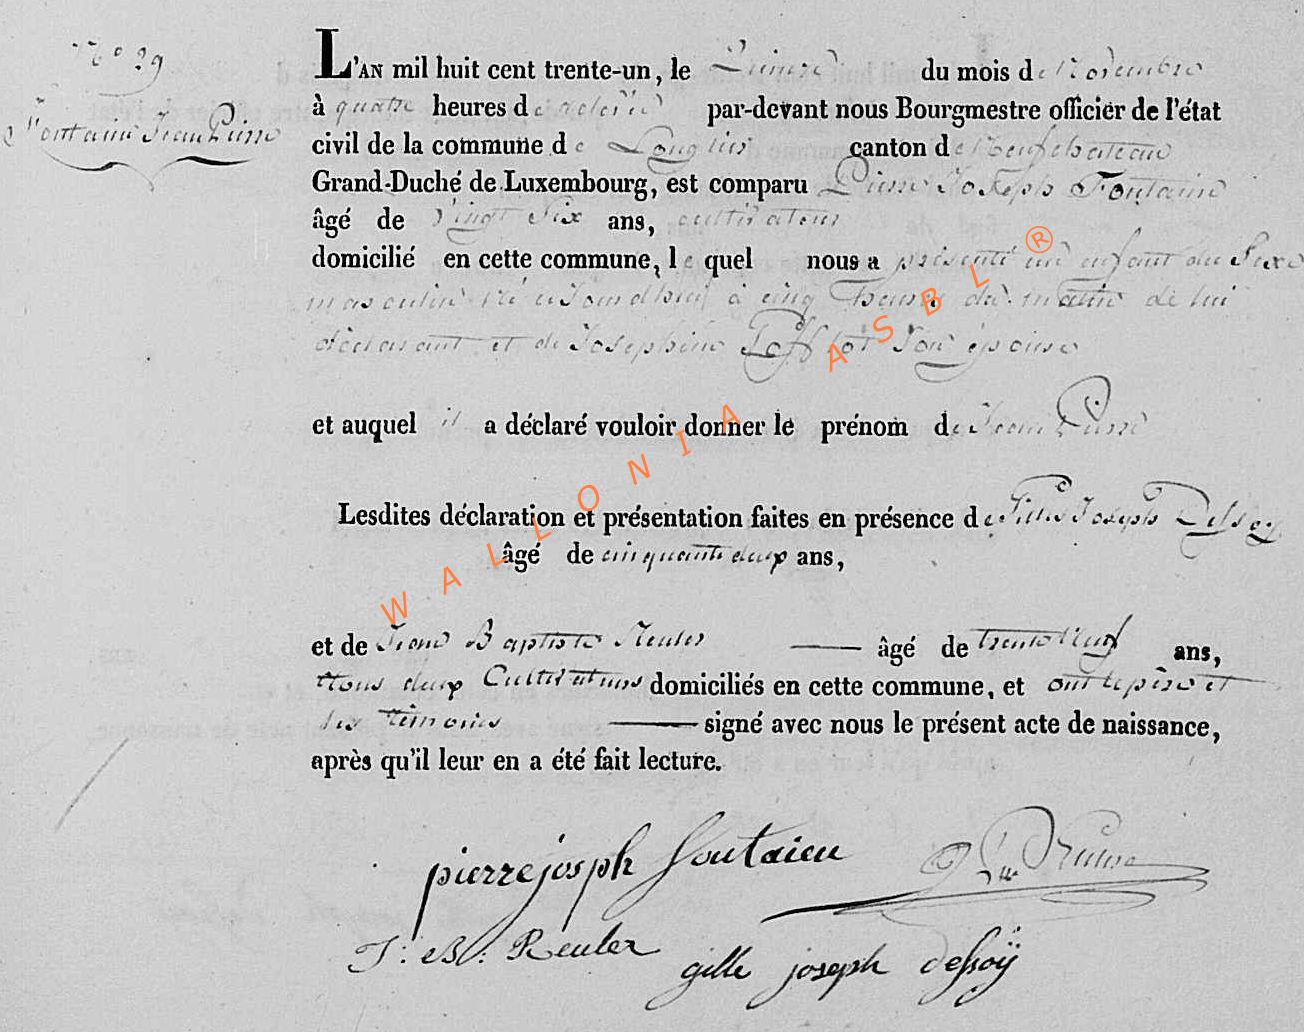 N° 29
Fontaine Jean Pierre
L'AN mil huit cent trente-un, le Quinze du mois de Novembre
à quatre heures de relevée par-devant nous Bourgmestre officier de l'état
civil de la commune de Longlier canton de Neufchateau
Grand-Duché de Luxembourg, est comparu Pierre Joseph Fontaine
âgé de vingt Six ans, cultivateur
domicilié en cette commune, le quel nous a présenté un enfant du Sexe
masculin né aujourdhuy à cinq heures du matin de lui
déclarant et de Josephine son épouse
et auquel il a déclaré vouloir donner le prénom de Jean Pierre
Lesdites déclaration et présentation faites en présence de Gilles Joseph Dessoy
âgé de cinquante deux ans,
et de Jean Baptiste Reuler âgé de trente neuf ans,
tous deux Cultivateurs domiciliés en cette commune, et ont le père et
les témoins signé avec nous le présent acte de naissance,
après qu'il leur en a été fait lecture.
pierre joseph fontaine
J: B: Reuler
gille joseph dessoÿ
WALLONIA ASBL ®